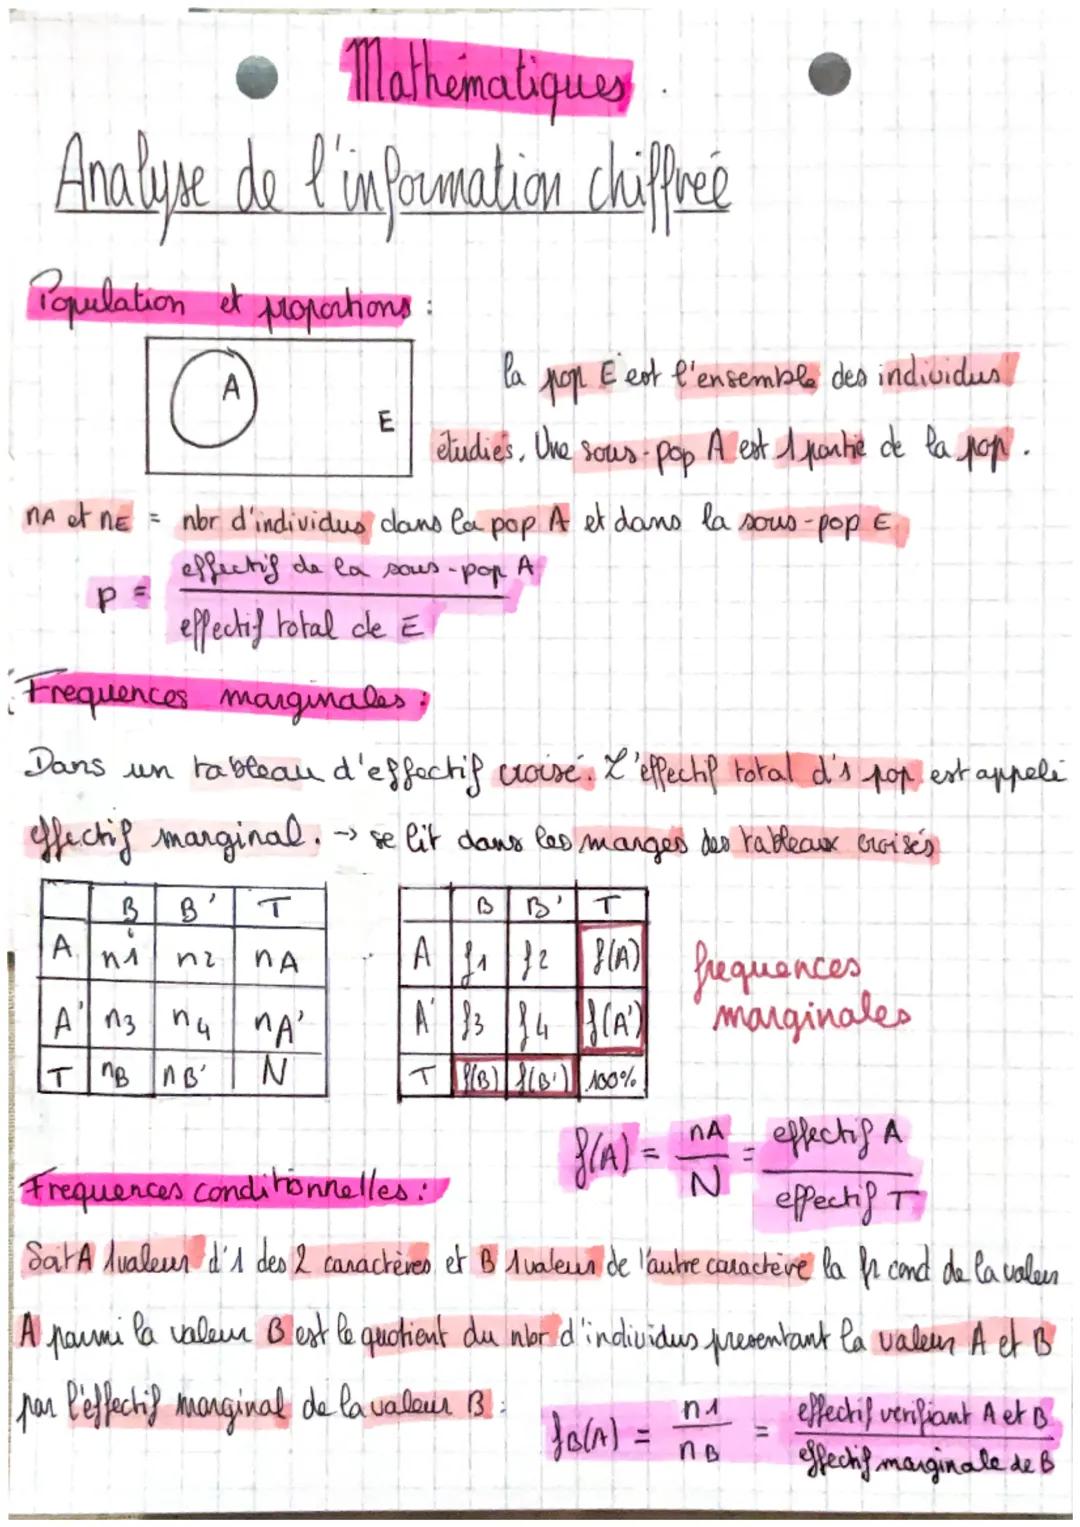 Mathématiques
Analyse de l'information chiffrée
Population et proportions :
A
E
la pop E est l'ensemble des individus
étudiés. Une sous-pop A est 1 partie de la pop.
nA et nE = nbr d'individus dans la pop A et dans la sous-pop E
p = effectif de la sous-pop A
effectif total de E
Frequences marginales :
Dans un tableau d'effectif croisé. L'effectif total d'1 pop est appelé
effectif marginal. → se lit dans les marges des tableaux croisés
B B' T
A n1 n2 nA
A' n3 n4 nA'
T nB nB' N
B B' T
A f1 f2 f(A)
A' f3 f4 f(A')
T f(B) f(B') 100%
frequences
marginales
f(A) = nA / N = effectif A / effectif T
Frequences conditionnelles :
Soit A 1 valeur d'1 des 2 caractères et B 1 valeur de l'autre caractère la fr cond de la valeur
A parmi la valeur B est le quotient du nbr d'individus presentant la valeur A et B
par l'effectif marginal de la valeur B :
fB(A) = n1 / nB = effectif verifiant A et B / effectif marginale de B